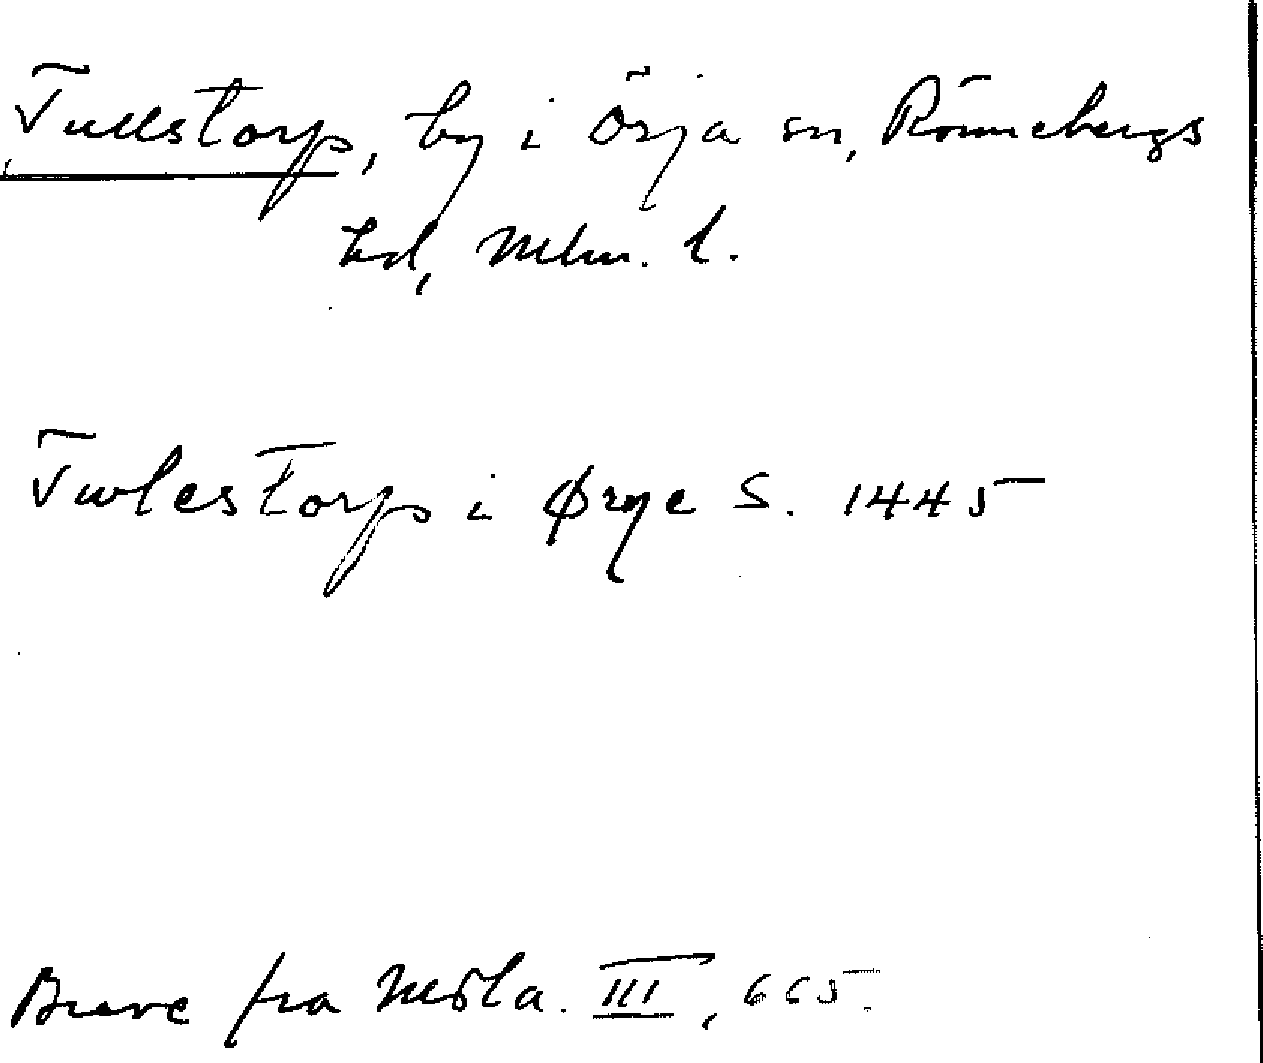 Tullstorp, by i Örja sn, Rönnebergs
hd, Mlm. l.
Twlestorp i Ørye S. 1445
Breve fra Msla. III, 665.